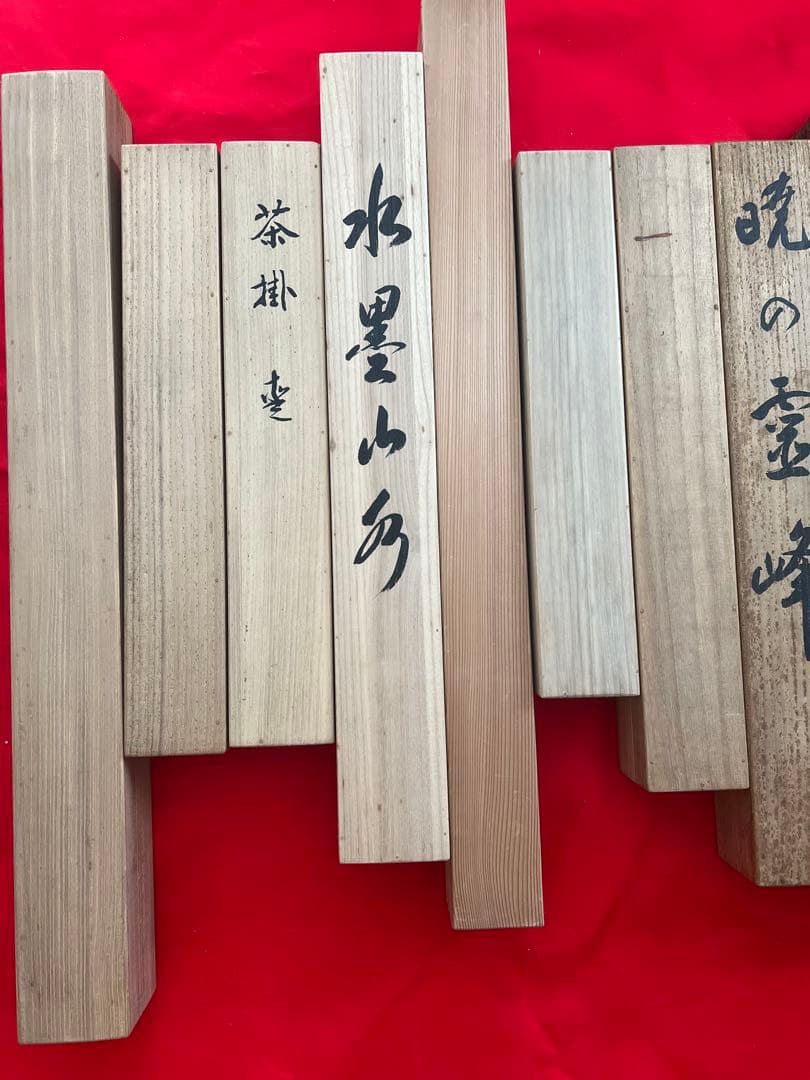 茶掛
水墨山水
暁の霊峰